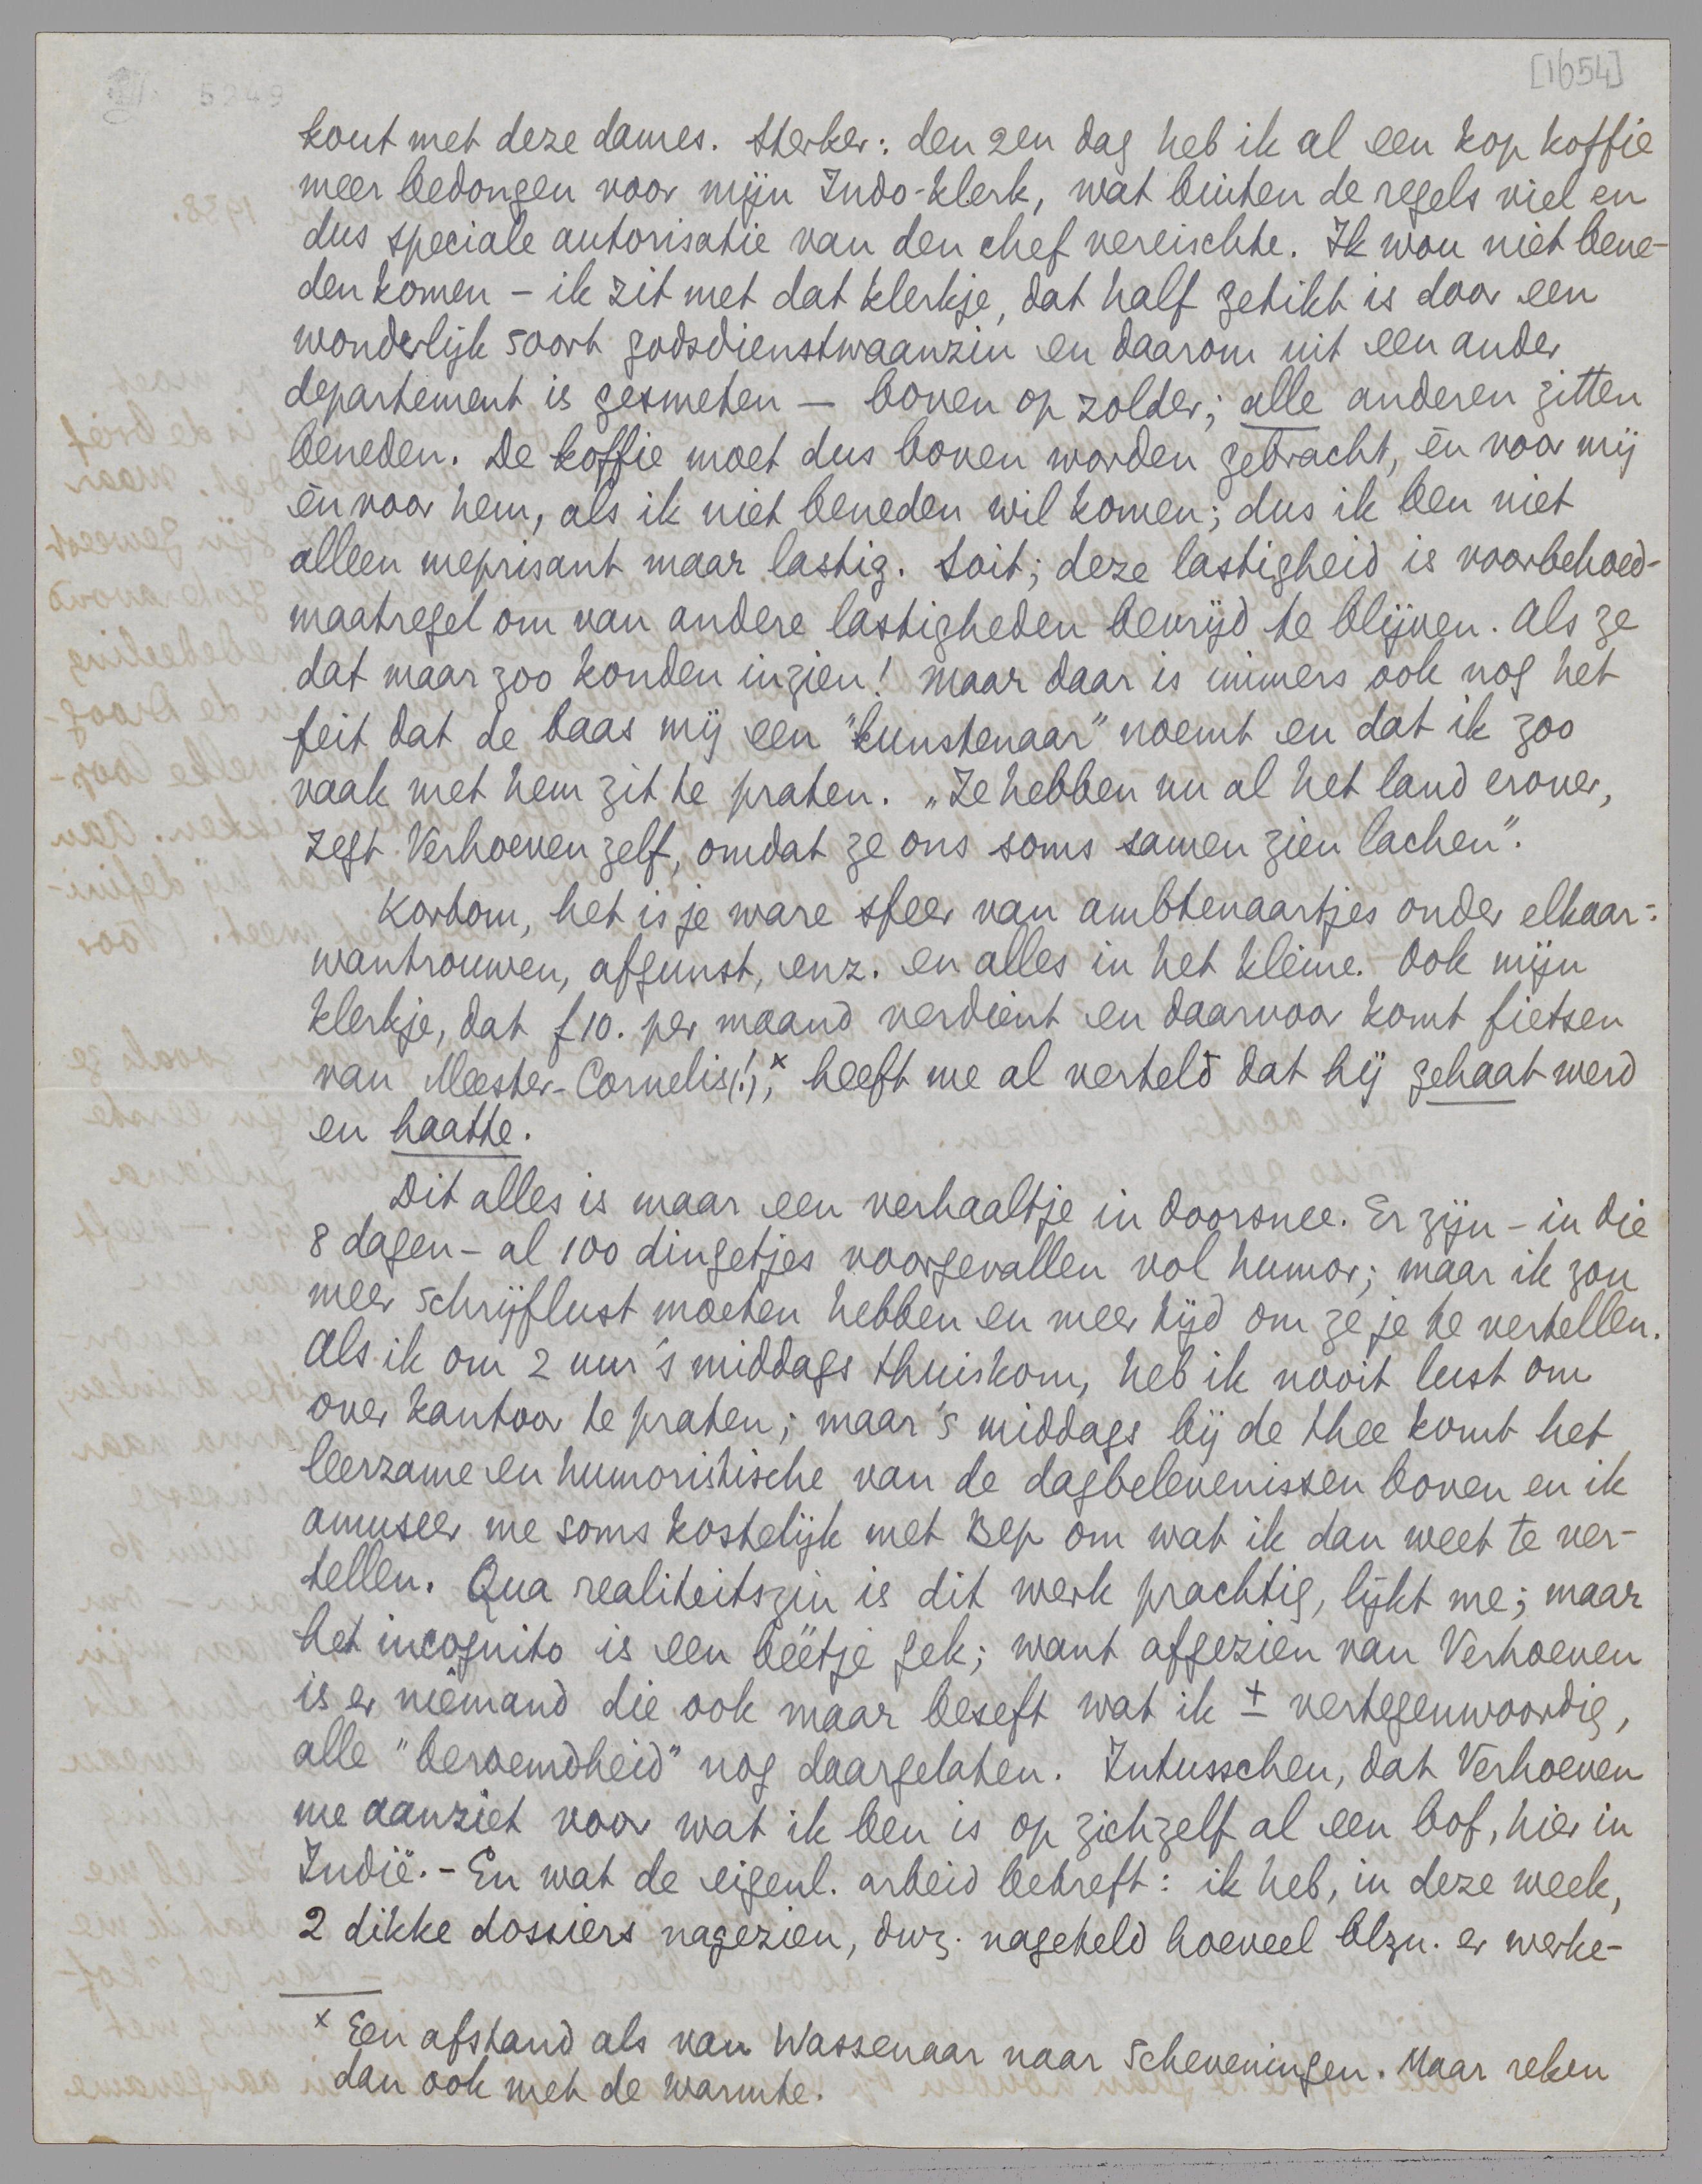 [1654]
5249
kout met deze dames. Sterker: den 2en dag heb ik al een kop koffie
meer bedongen voor mijn Indo-klerk, wat buiten de regels viel en
dus speciale autorisatie van den chef vereischte. Ik wou niet bene-
den komen – ik zit met dat klerkje, dat half getikt is door een
wonderlijk soort godsdienstwaanzin en daarom uit een ander
departement is gesmeten — boven op zolder; alle anderen zitten
beneden. De koffie moet dus boven worden gebracht, èn voor mij
èn voor hem, als ik niet beneden wil komen; dus ik ben niet
alleen meprisant maar lastig. Soit; deze lastigheid is voorbehoed-
maatregel om van andere lastigheden bevrijd te blijven. Als ze
dat maar zoo konden inzien! Maar daar is immers ook nog het
feit dat de baas mij een "kunstenaar" noemt en dat ik zoo
vaak met hem zit te praten. „Ze hebben nu al het land erover,
zegt Verhoeven zelf, omdat ze ons soms samen zien lachen".
Kortom, het is je ware sfeer van ambtenaartjes onder elkaar:
wantrouwen, afgunst, enz. en alles in het kleine. Ook mijn
klerkje, dat f 10. per maand verdient en daarvoor komt fietsen
van Meester-Cornelis(!),x heeft me al verteld dat hij gehaat werd
en haatte.
Dit alles is maar een verhaaltje in doorsnee. Er zijn – in die
8 dagen – al 100 dingetjes voorgevallen vol humor; maar ik zou
meer schrijflust moeten hebben en meer tijd om ze je te vertellen.
Als ik om 2 uur 's middags thuiskom, heb ik nooit lust om
over kantoor te praten; maar 's middags bij de thee komt het
leerzame en humoristische van de dagbelevenissen boven en ik
amuseer me soms kostelijk met Bep om wat ik dan weet te ver-
tellen. Qua realiteitszin is dit werk prachtig, lijkt me; maar
het incognito is een beetje gek; want afgezien van Verhoeven
is er niemand die ook maar beseft wat ik ± vertegenwoordig,
alle "beroemdheid" nog daargelaten. Intusschen, dat Verhoeven
me aanziet voor wat ik ben is op zichzelf al een bof, hier in
Indië. – En wat de eigenl. arbeid betreft: ik heb, in deze week,
2 dikke dossiers nagezien, dwz. nageteld hoeveel blzn. er werke-
x Een afstand als van Wassenaar naar Scheveningen. Maar reken
dan ook met de warmte.